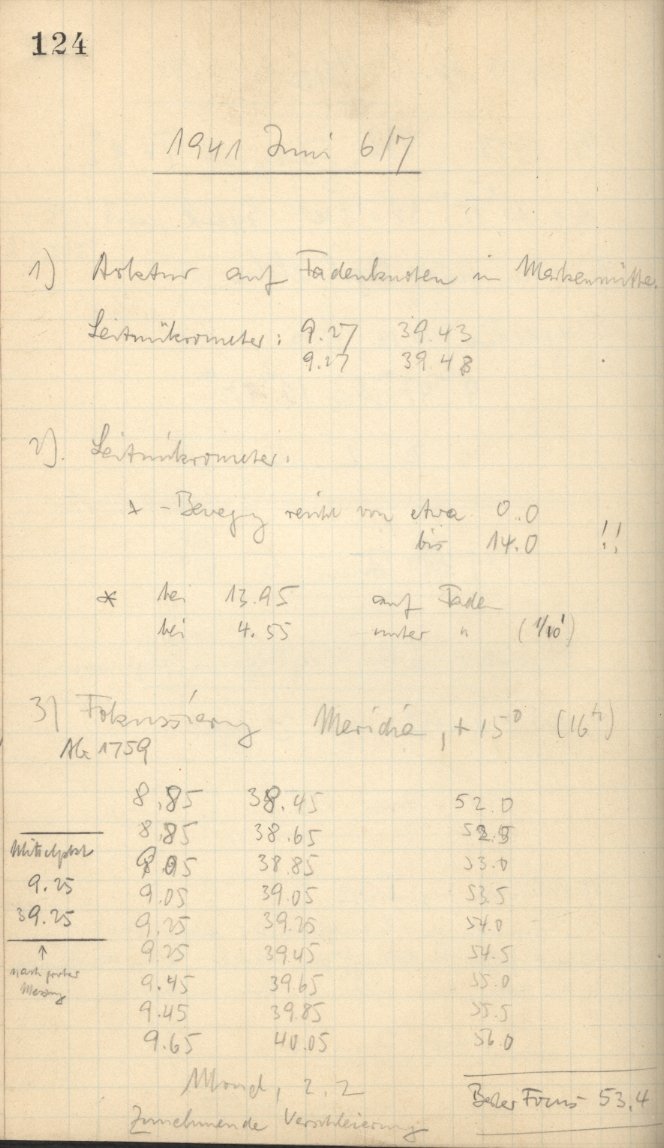 124
1941 Juni 6/7
1) Arktur auf Fadenknoten in Markenmitte.
Leitmikrometer: 9.27 39.43
9.27 39.48
2). Leitmikrometer:
* - Bewegg reicht von etwa 0.0
bis 14.0 !!
* bei 13.95 auf Faden
bei 4.55 unter " (1/10')
3) Fokussierung Meridia, +15° (16h)
AG 1759
8.85 38.45 52.0
8.85 38.65 52.5
9.05 38.85 53.0
9.05 39.05 53.5
9.25 39.25 54.0
9.25 39.45 54.5
9.45 39.65 55.0
9.45 39.85 55.5
9.65 40.05 56.0
Mittelpkt
9.25
39.25
↑
nach grober
Messg
Mond, 2.2
Zunehmende Verschleierung
Bester Focus 53.4